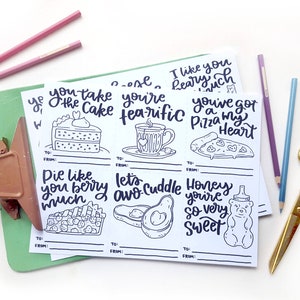 I like you
Beary much
you take
the Cake
you're
tea-rific
you've got
a Pizza my
Heart
TO:
FROM:
TO:
FROM:
TO:
FROM:
Pie like
you berry
much
lets
avo-Cuddle
Honey
you're
so very
Sweet
TO:
FROM:
TO:
FROM:
TO:
FROM: